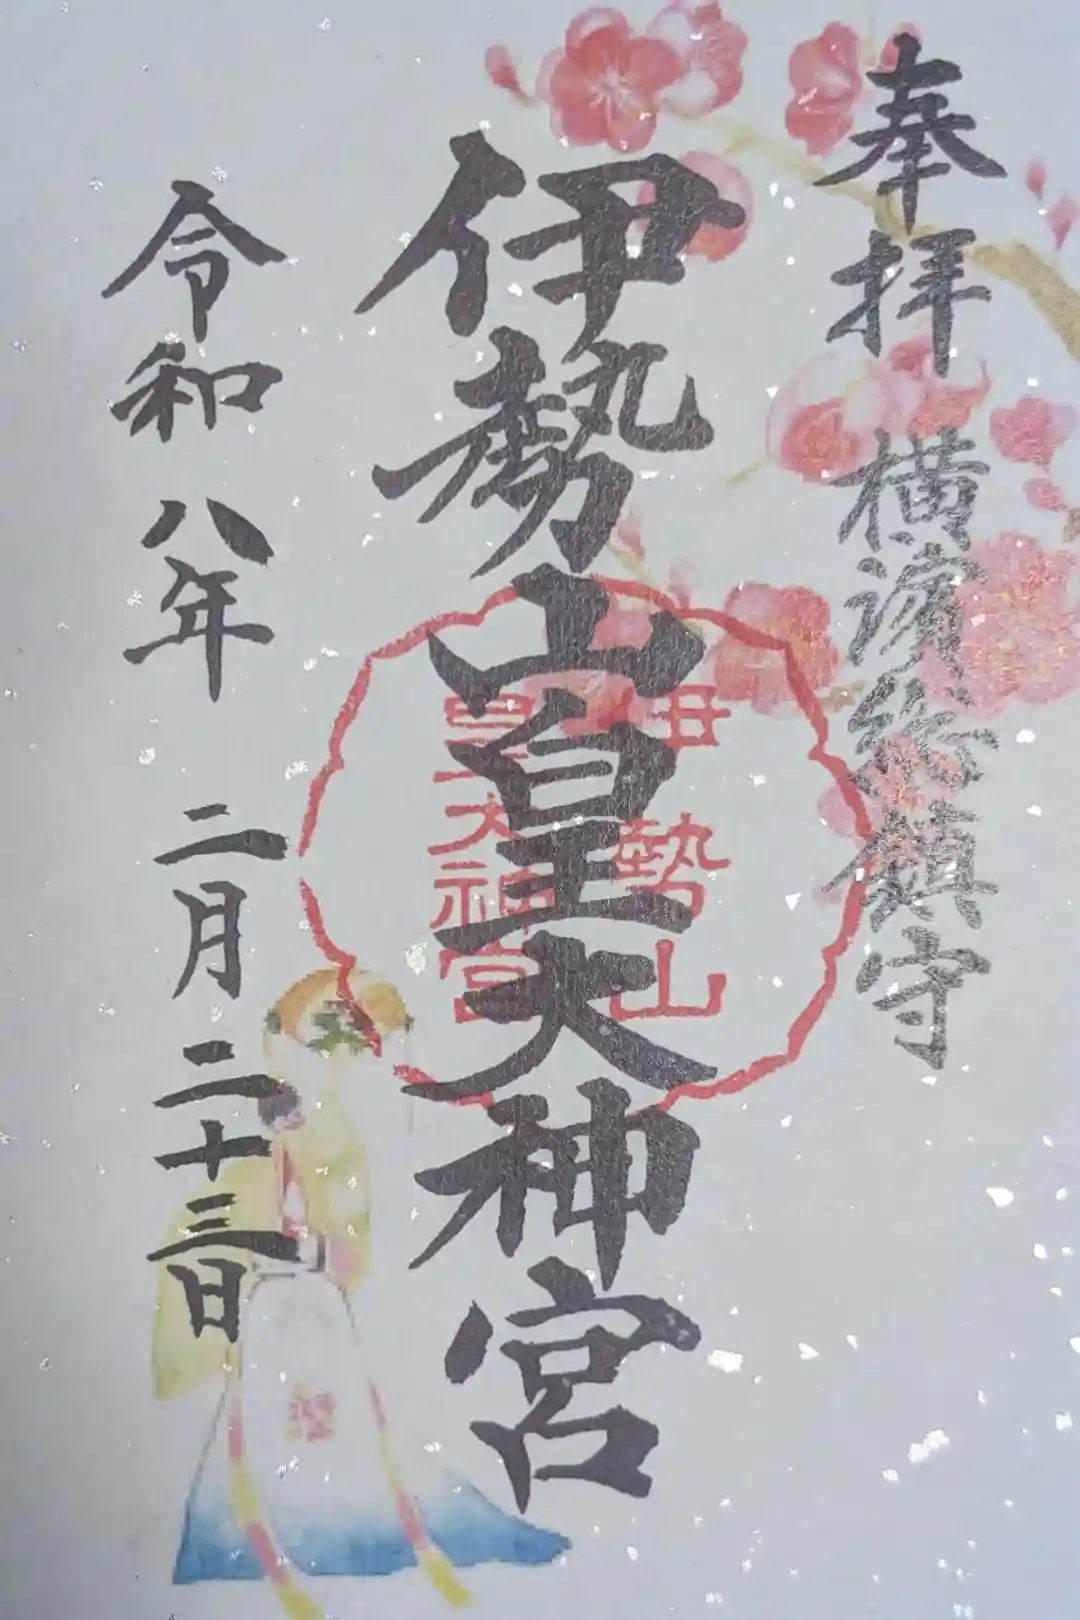 奉拝 横濱総鎮守
伊勢山皇大神宮
伊勢山
皇大神宮
令和八年 二月二十三日